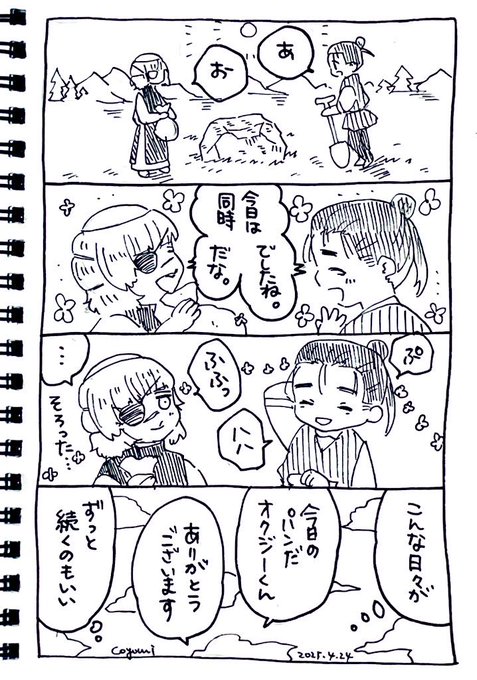 あ
お
今日は
同時
でしたね。
だな。
ぷ
ふふっ
…
そろった…
こんな日々が
今日の
パンだ
オクジーくん
ありがとう
ございます
ずっと
続くのもいい
Coyomi
2025.4.24